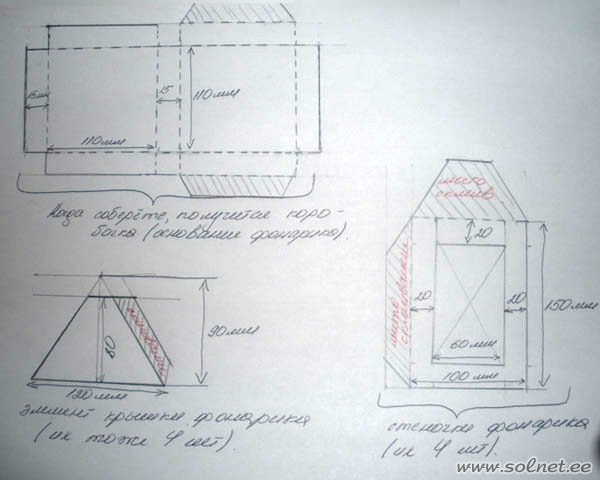 15мм
15
110мм
110мм
Когда соберёте, получится коро-
бочка (основание фонарика).
место
склеив.
20
место
склеивания
20
20
150мм
60мм
100мм
90мм
80
120мм
элемент крышки фонарика
(их тоже 4 шт).
стеночки фонарика
(их 4 шт).
www.solnet.ee